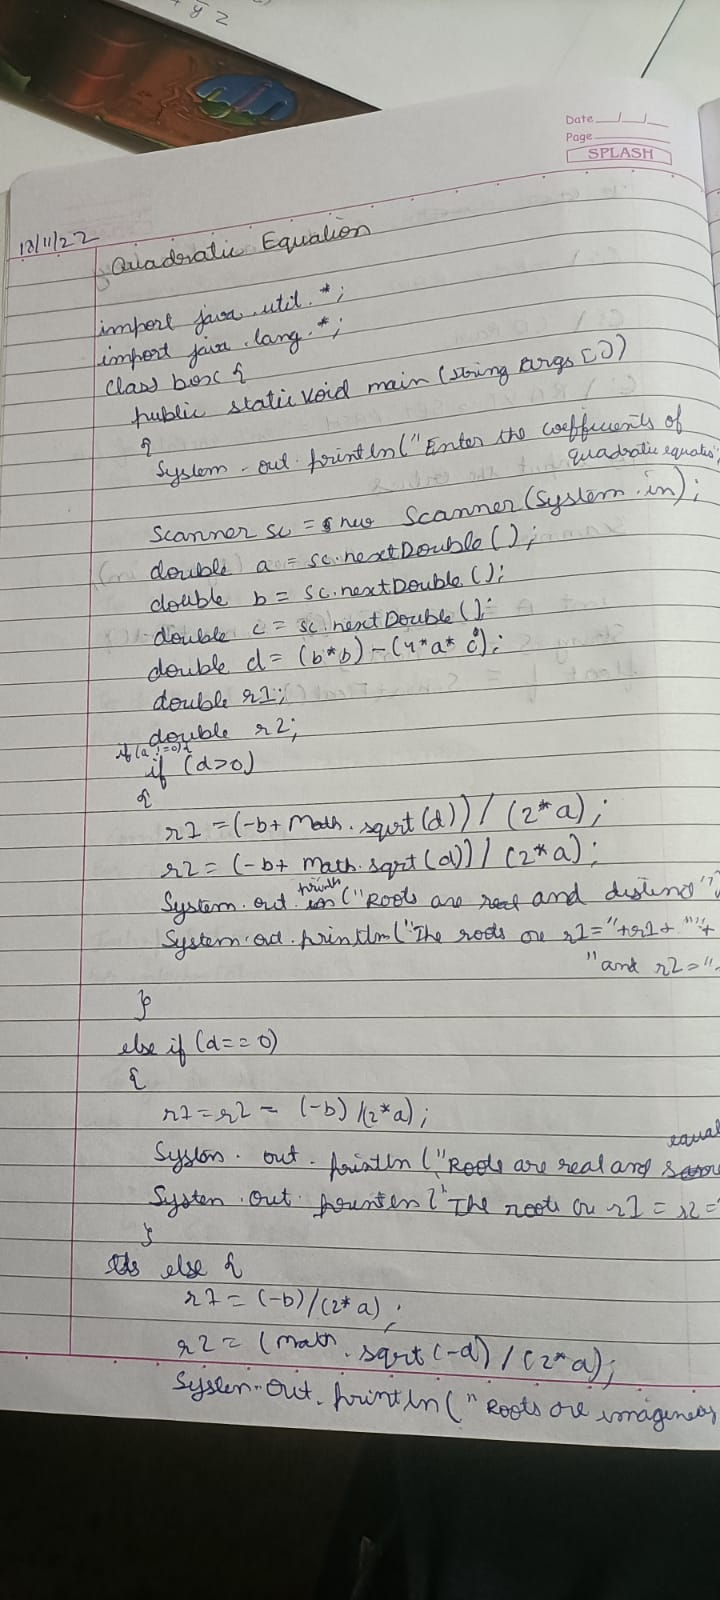 y 2
Date / /
Page
SPLASH
18/11/22
Quadratic Equation
import java.util.*;
import java.lang.*;
class box {
public static void main (String args [])
{
System.out.println("Enter the coefficients of
quadratic equation
Scanner sc = new Scanner (System.in);
double a = sc.nextDouble();
double b = sc.nextDouble();
double c = sc.nextDouble();
double d = (b*b)-(4*a*c);
double r1;
double r2;
if(a!=0){
if (d>0)
{
r1 =(-b+Math.sqrt(d))/(2*a);
r2 = (-b+ Math.sqrt(d))/(2*a);
System.out.println("Roots are real and distinc"
System.out.println("The roots are r1="+r1+" "+
"and r2="
}
else if (d==0)
{
r1=r2 = (-b)/(2*a);
equal
System.out.println("Roots are real and
System.out.println("The roots are r1 = r2 =
}
else {
r1 = (-b)/(2*a);
r2 = (Math.sqrt(-d)/(2*a);
System.out.println("Roots are imaginary